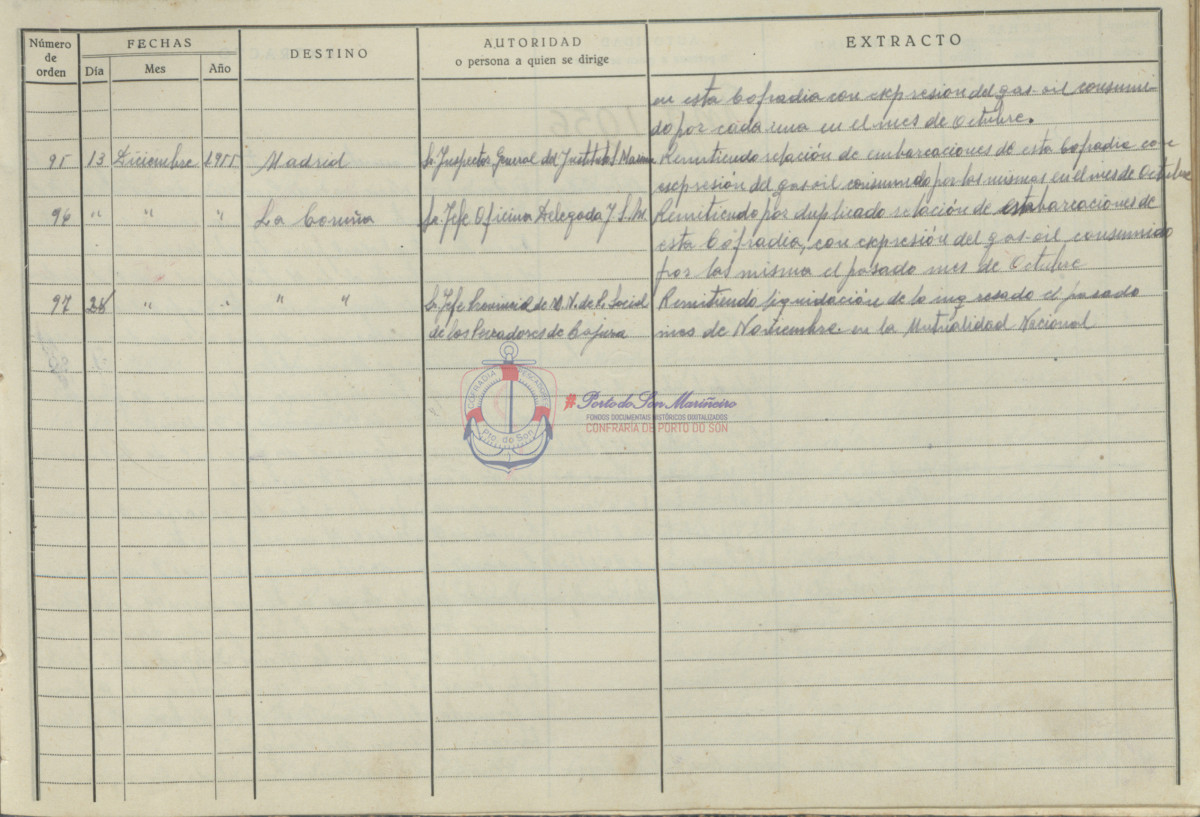 Número de orden
FECHAS
Día Mes Año
DESTINO
AUTORIDAD
o persona a quien se dirige
EXTRACTO
en esta Cofradia con expresión del gas-oil consumi-
do por cada una en el mes de Octubre.
95 13 Diciembre 1955 Madrid Sr. Inspector General del Instituto S. Marina Remitiendo relación de embarcaciones de esta Cofradia con
expresión del gas-oil consumido por las mismas en el mes de Octubre
96 " " " La Coruña Sr. Jefe Oficina Delegada I. S. M. Remitiendo por duplicado relación de embarcaciones de
esta Cofradia, con expresión del gas-oil consumido
por las misma el pasado mes de Octubre
97 " " " " Sr. Jefe Provincial de M. N. de P. Social Remitiendo liquidación de lo ingresado el pasado
de los Pescadores de Bajura mes de Noviembre en la Mutualidad Nacional
COFRADIA PESCADORES
Pto. do Son
#Porto do Son Mariñeiro
FONDOS DOCUMENTAIS HISTÓRICOS DIXITALIZADOS
CONFRARÍA DE PORTO DO SON